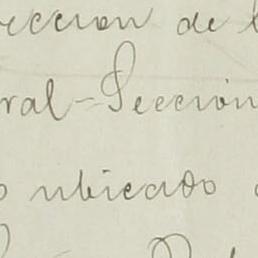 reccion de l
ral-Seccion
o ubicado